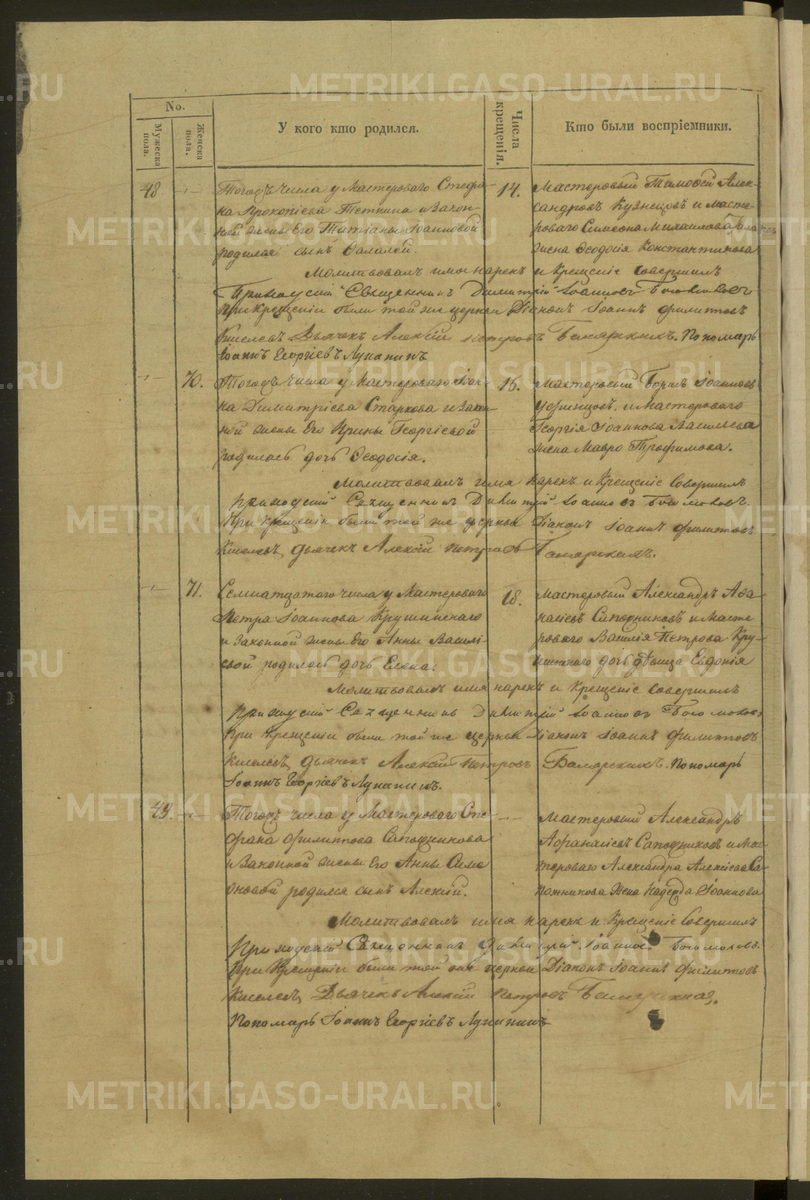 METRIKI.GASO-URAL.RU
No.
Мужеска пола.
Женска пола.
У кого кто родился.
Числа крещенія.
Кто были воспріемники.
48
Тогожъ числа у Мастероваго Стефа-
на Прокопіева и закон-
ной жены его Татіаны Іоанновой
родился сынъ
14.
Мастеровый Тимофей Алек-
сандровъ Кузнецовъ и Масте-
роваго Симеона Михаилова
жена Ѳеодосія Константинова
Молитвовалъ имя нарекъ и Крещеніе совершилъ
Приходскій Священникъ Димитрій Іоанновъ Богомоловъ
При крещеніи были той же церкви Діаконъ Іоаннъ Филиповъ
Киселевъ Дьячекъ Алексій Петровъ Пономарь
Іоаннъ Георгіевъ
70.
Тогожъ числа у Мастероваго Іоан-
на Димитріева Старкова и закон-
ной жены его Ирины Георгіевой
родилась дочь Ѳеодосія.
15.
Мастеровый Іоанновъ
и Мастероваго
Георгія Іоаннова Васильева
жена Мавра Трофимова.
Молитвовалъ имя нарекъ и Крещеніе совершилъ
приходскій Священникъ Димитрій Іоанновъ Богомоловъ.
При крещеніи были той же церкви Діаконъ Іоаннъ Филиповъ
Киселевъ, дьячекъ Алексій Петровъ
71.
Семнатцатого числа у Мастероваго
Петра Іоаннова Крушинскаго
и законной жены его Анны Василі-
евой родилась дочь Елена.
18.
Мастеровый Александръ Афа-
насіевъ Сапожниковъ и Масте-
роваго Василія Петрова
дочь дѣвица Евдокія
Молитвовалъ имя нарекъ и Крещеніе совершилъ
приходскій Священникъ Димитрій Іоанновъ Богомоловъ
При крещеніи были той же церкви Діаконъ Іоаннъ Филиповъ
Киселевъ, дьячекъ Алексій Петровъ Пономарь
Іоаннъ Георгіевъ
49.
Тогожъ числа у Мастероваго Сте-
фана Филипова Сапожникова
и законной жены его Анны Симе-
оновой родился сынъ Алексій.
Мастеровый Александръ
Афанасіевъ Сапожниковъ и Мас-
тероваго Александра Алексіева Са-
пожникова жена Надежда Іоаннова
Молитвовалъ имя нарекъ и Крещеніе совершилъ
Приходскій Священникъ Димитрій Іоанновъ Богомоловъ.
При Крещеніи были той же церкви Діаконъ Іоаннъ Филиповъ
Киселевъ, Дьячекъ Алексій Петровъ
Пономарь Іоаннъ Георгіевъ